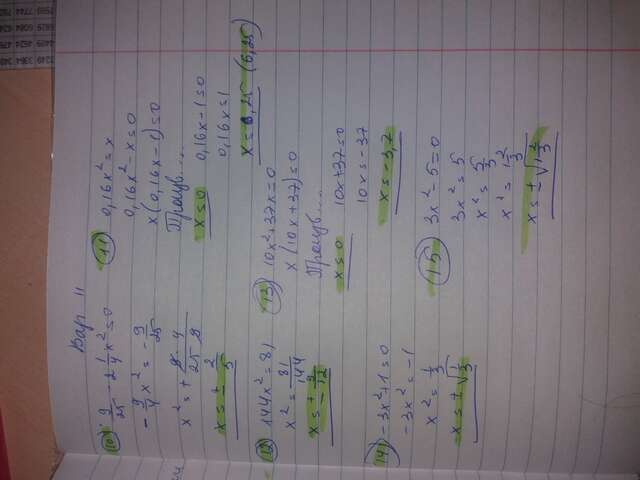 Вар 11
10) 9/25 - 2 1/4 x² = 0
- 9/4 x² = - 9/25
x² = + 9 · 4 / 25 · 9
x = ± 2/5
11) 0,16x² = x
0,16x² - x = 0
x(0,16x - 1) = 0
Произв....
x = 0
0,16x - 1 = 0
0,16x = 1
x = 6,25 (6,25)
12) 144x² = 81
x² = 81/144
x = ± 9/12
13) 10x² + 37x = 0
x(10x + 37) = 0
Произв....
x = 0
10x + 37 = 0
10x = -37
x = -3,7
14) -3x² + 1 = 0
-3x² = -1
x² = 1/3
x = ± √1/3
15) 3x² - 5 = 0
3x² = 5
x² = 5/3
x² = 1 2/3
x = ± √1 2/3